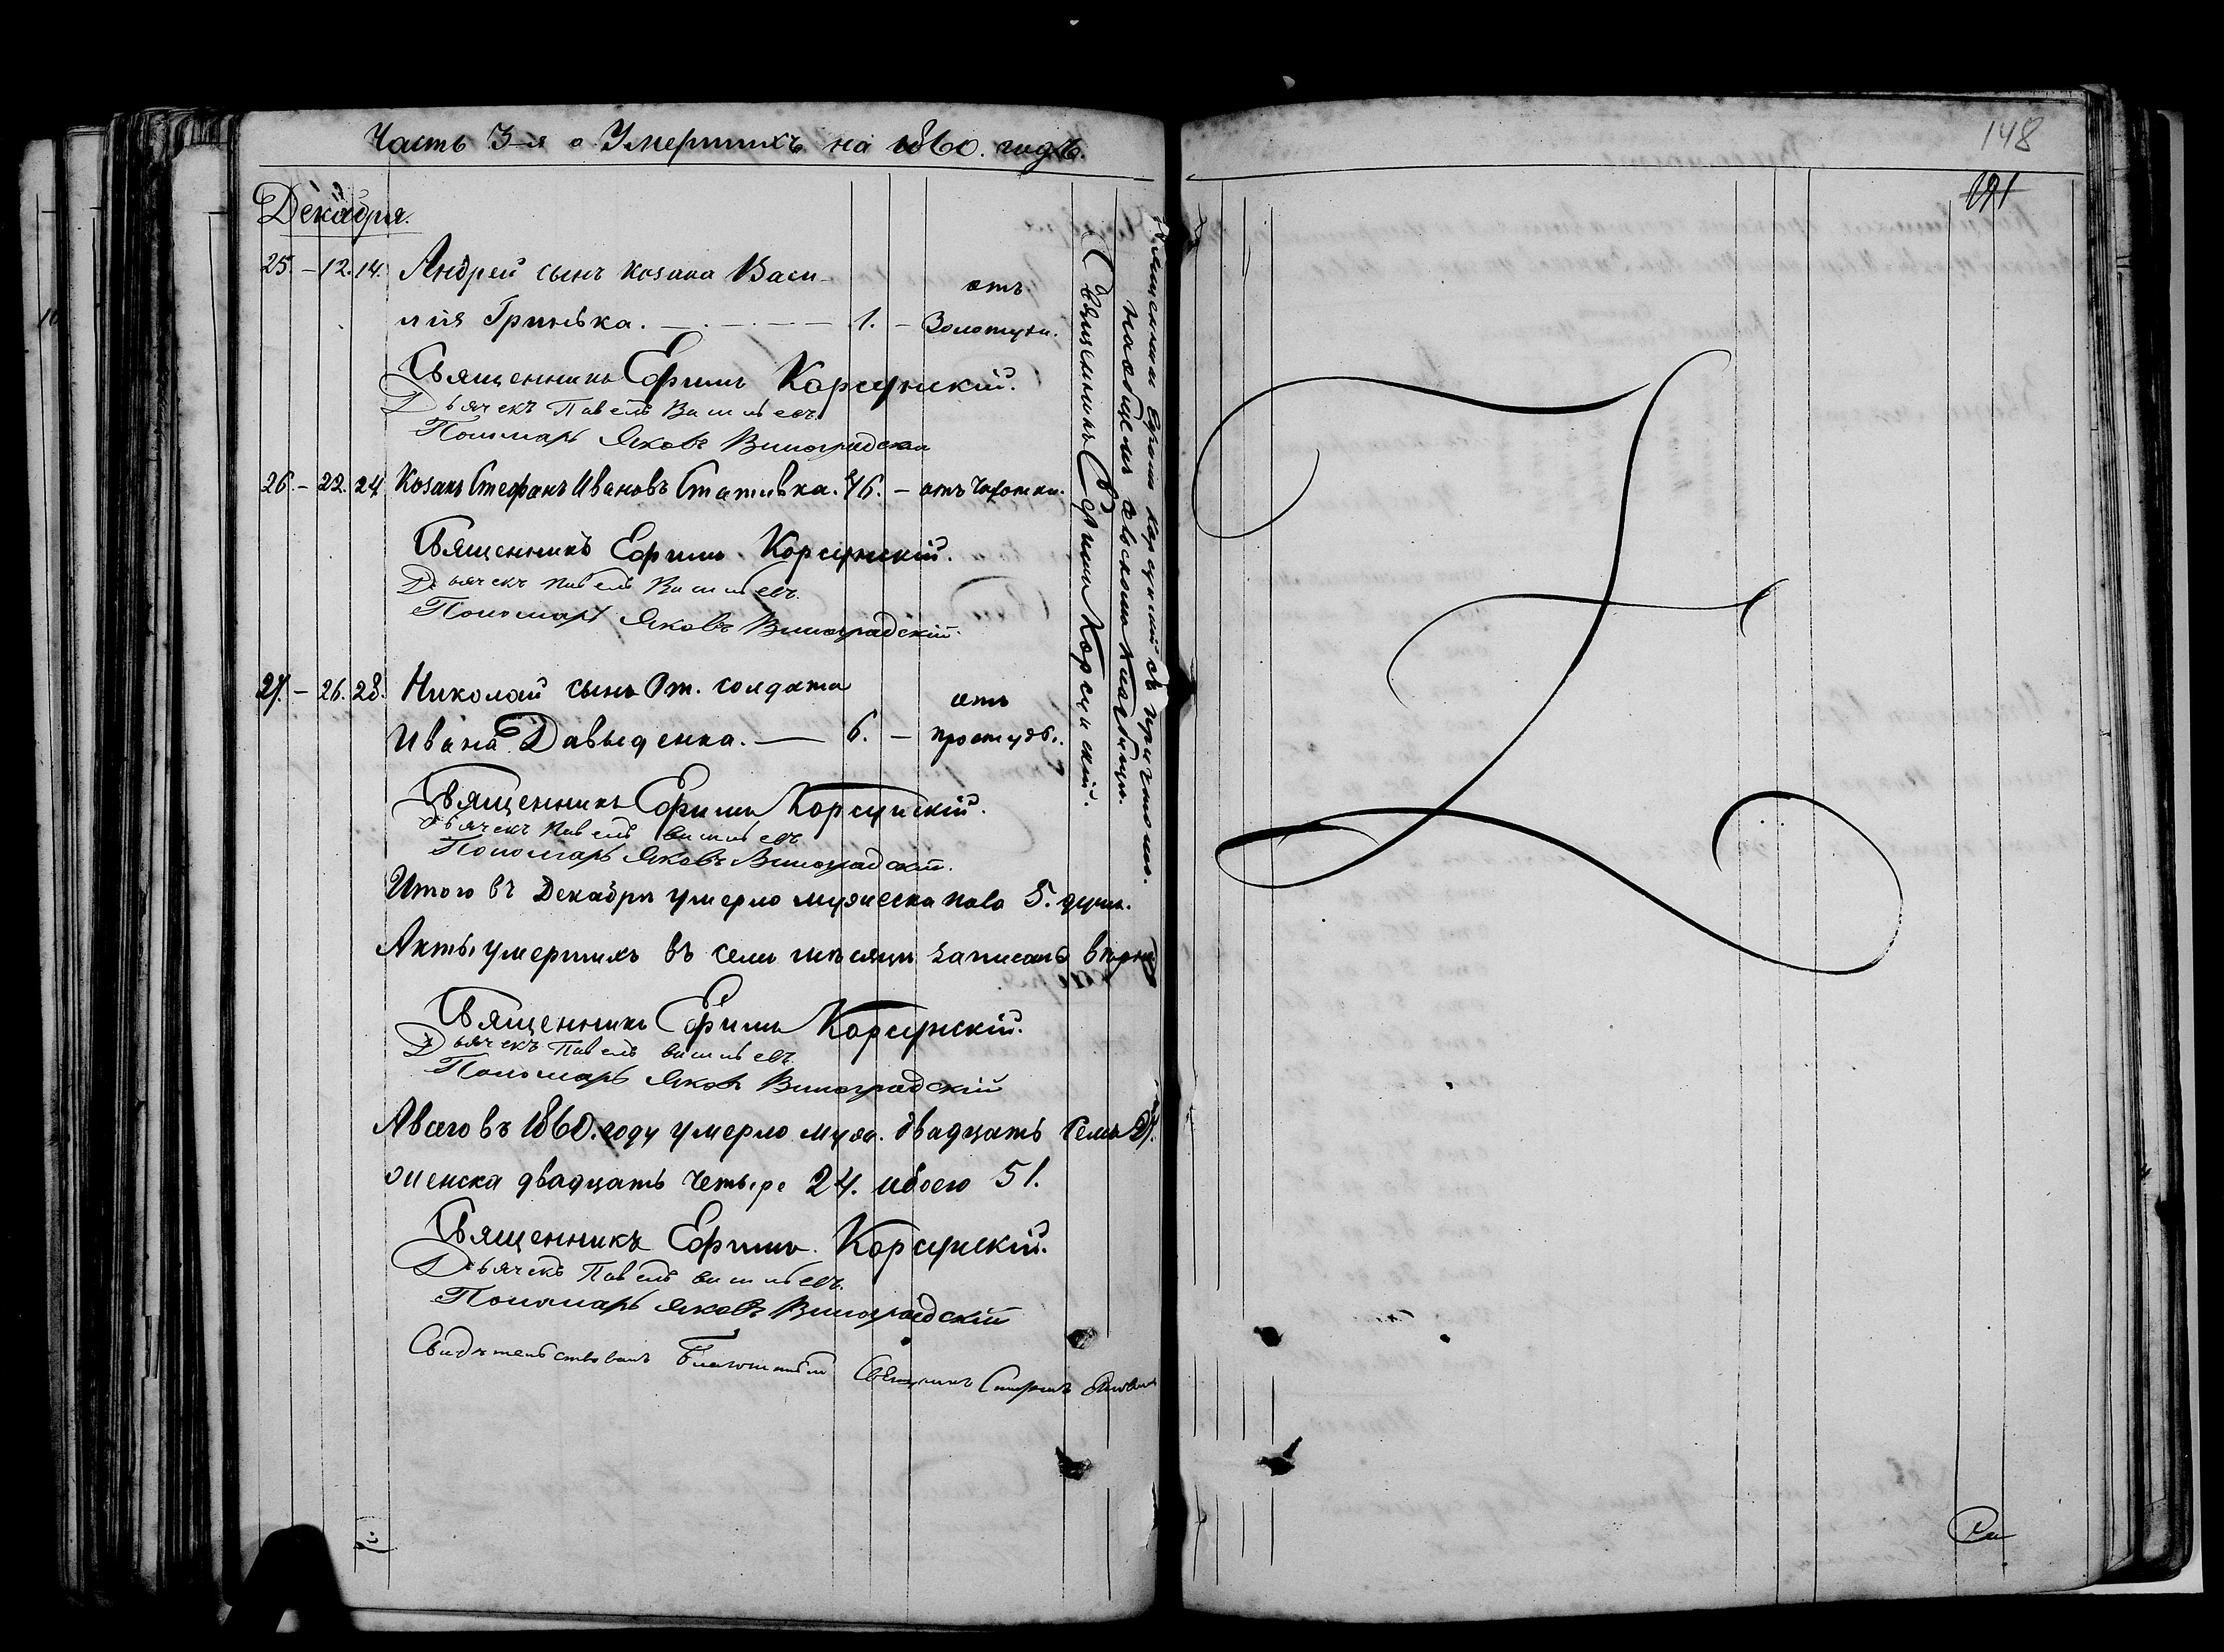 Часть 3-я о Умершихъ на 1860. годъ.
148
191
Декабря.
25. – 12. 14. Андрей сынъ козака Васи-
лія Гринька. 1. – отъ Золотухи.
Священникъ Ефимъ Корсунскій.
Дьячекъ Павелъ
Пономарь Яковъ Виноградскій
26. – 22. 24 Козакъ Стефанъ Ивановъ Стативка. 46. – отъ Чахотки.
Священникъ Ефимъ Корсунскій.
Дьячекъ Павелъ
Пономарь Яковъ Виноградскій.
27. – 26. 28. Николай сынъ От. солдата
Ивана Давыденка. — 6. – отъ простуды.
Священникъ Ефимъ Корсунскій.
Дьячекъ Павелъ
Пономарь Яковъ Виноградскій.
Итого въ Декабрѣ умерло мужеска пола 5. душъ.
Акты умершихъ въ семъ мѣсяцѣ записаны вѣрно
Священникъ Ефимъ Корсунскій.
Дьячекъ Павелъ
Пономарь Яковъ Виноградскій
А всего въ 1860. году умерло муж. двадцать семь 27.
женска двадцать четыре 24. обоего 51.
Священникъ Ефимъ Корсунскій.
Дьячекъ Павелъ
Пономарь Яковъ Виноградскій
Свидѣтельствовалъ Благочинный
Священникъ Ефимъ Корсунскій съ причтомъ.
на общемъ сельскомъ кладбищѣ.
Священникъ Ефимъ Корсунскій.